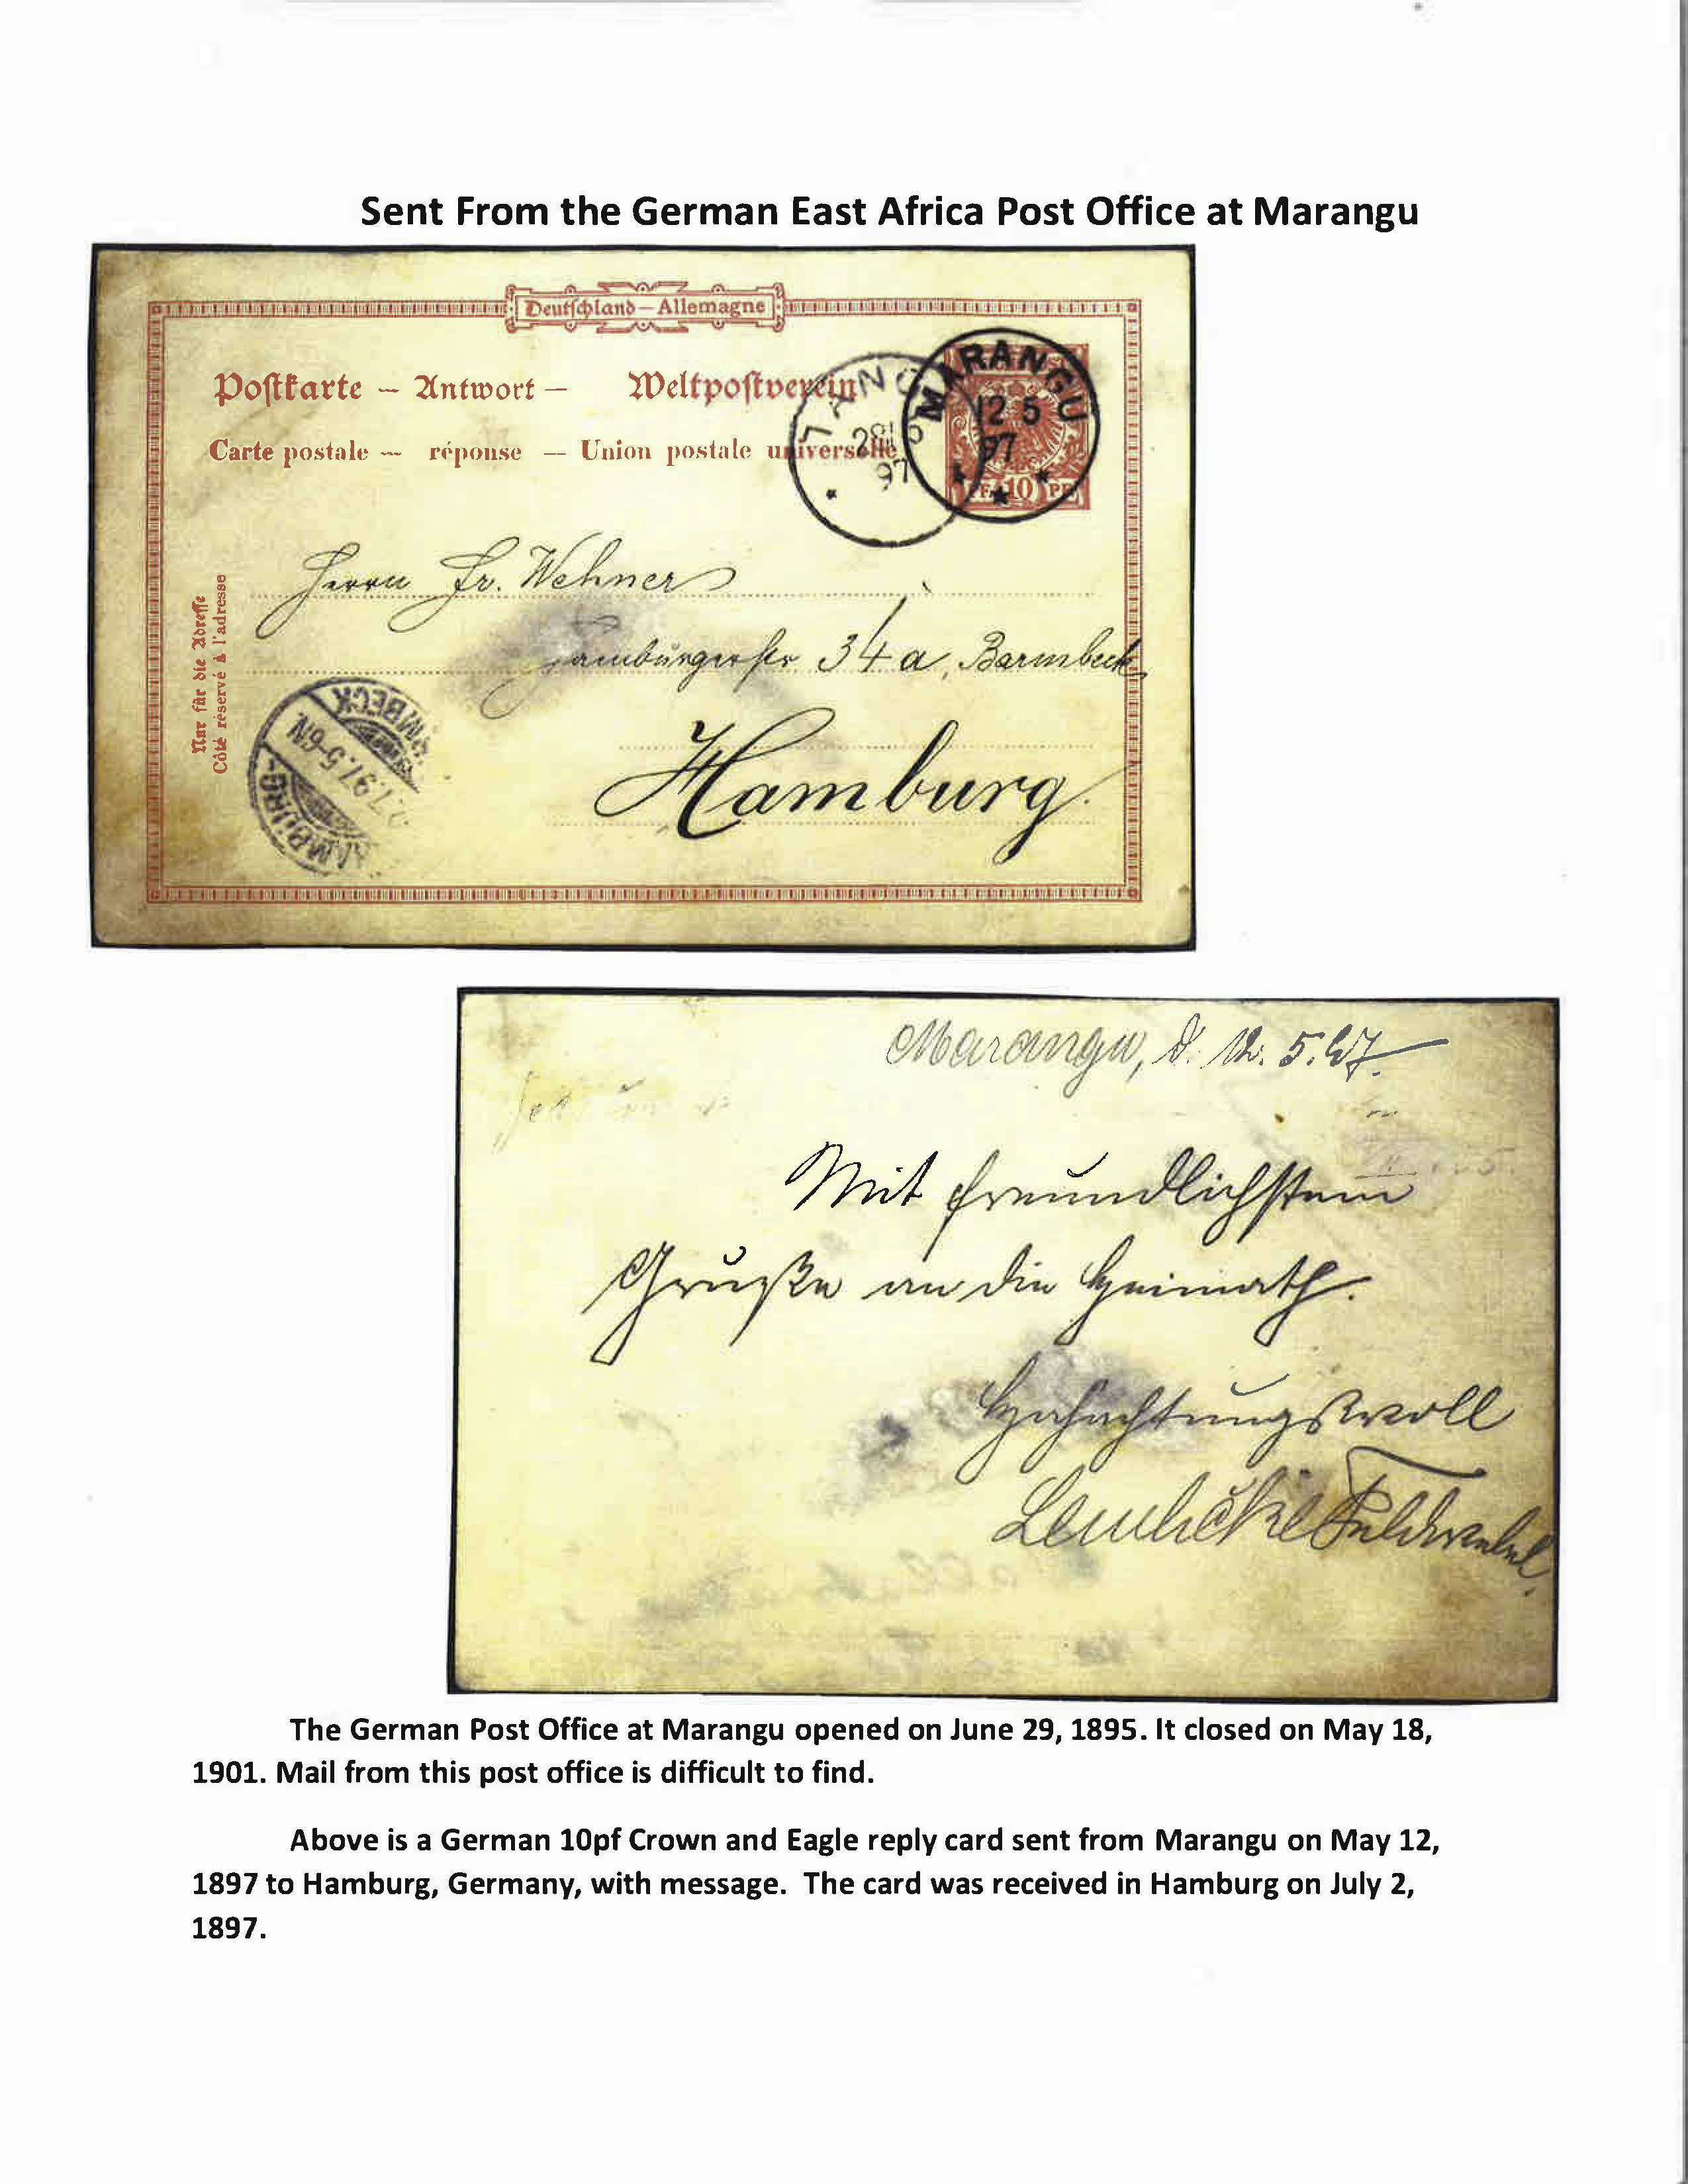 Sent From the German East Africa Post Office at Marangu
Deutschland – Allemagne
Postkarte – Antwort – Weltpostverein
Carte postale — réponse — Union postale universelle
Nur für die Adresse
Côté réservé à l'adresse
TANG
97
MARANGU
12 5
97
PF 10 PF
Herrn Fr. Wehner
Hamburgerstr 34 a, Barmbeck
Hamburg.
HAMBURG-
2.7.97.5-6N.
BARMBECK
Marangu, d. 12. 5. 97.
Mit freundlichstem
Gruße an die Heimath.
Hochachtungsvoll
Feldwebel.
The German Post Office at Marangu opened on June 29, 1895. It closed on May 18,
1901. Mail from this post office is difficult to find.
Above is a German 10pf Crown and Eagle reply card sent from Marangu on May 12,
1897 to Hamburg, Germany, with message. The card was received in Hamburg on July 2,
1897.